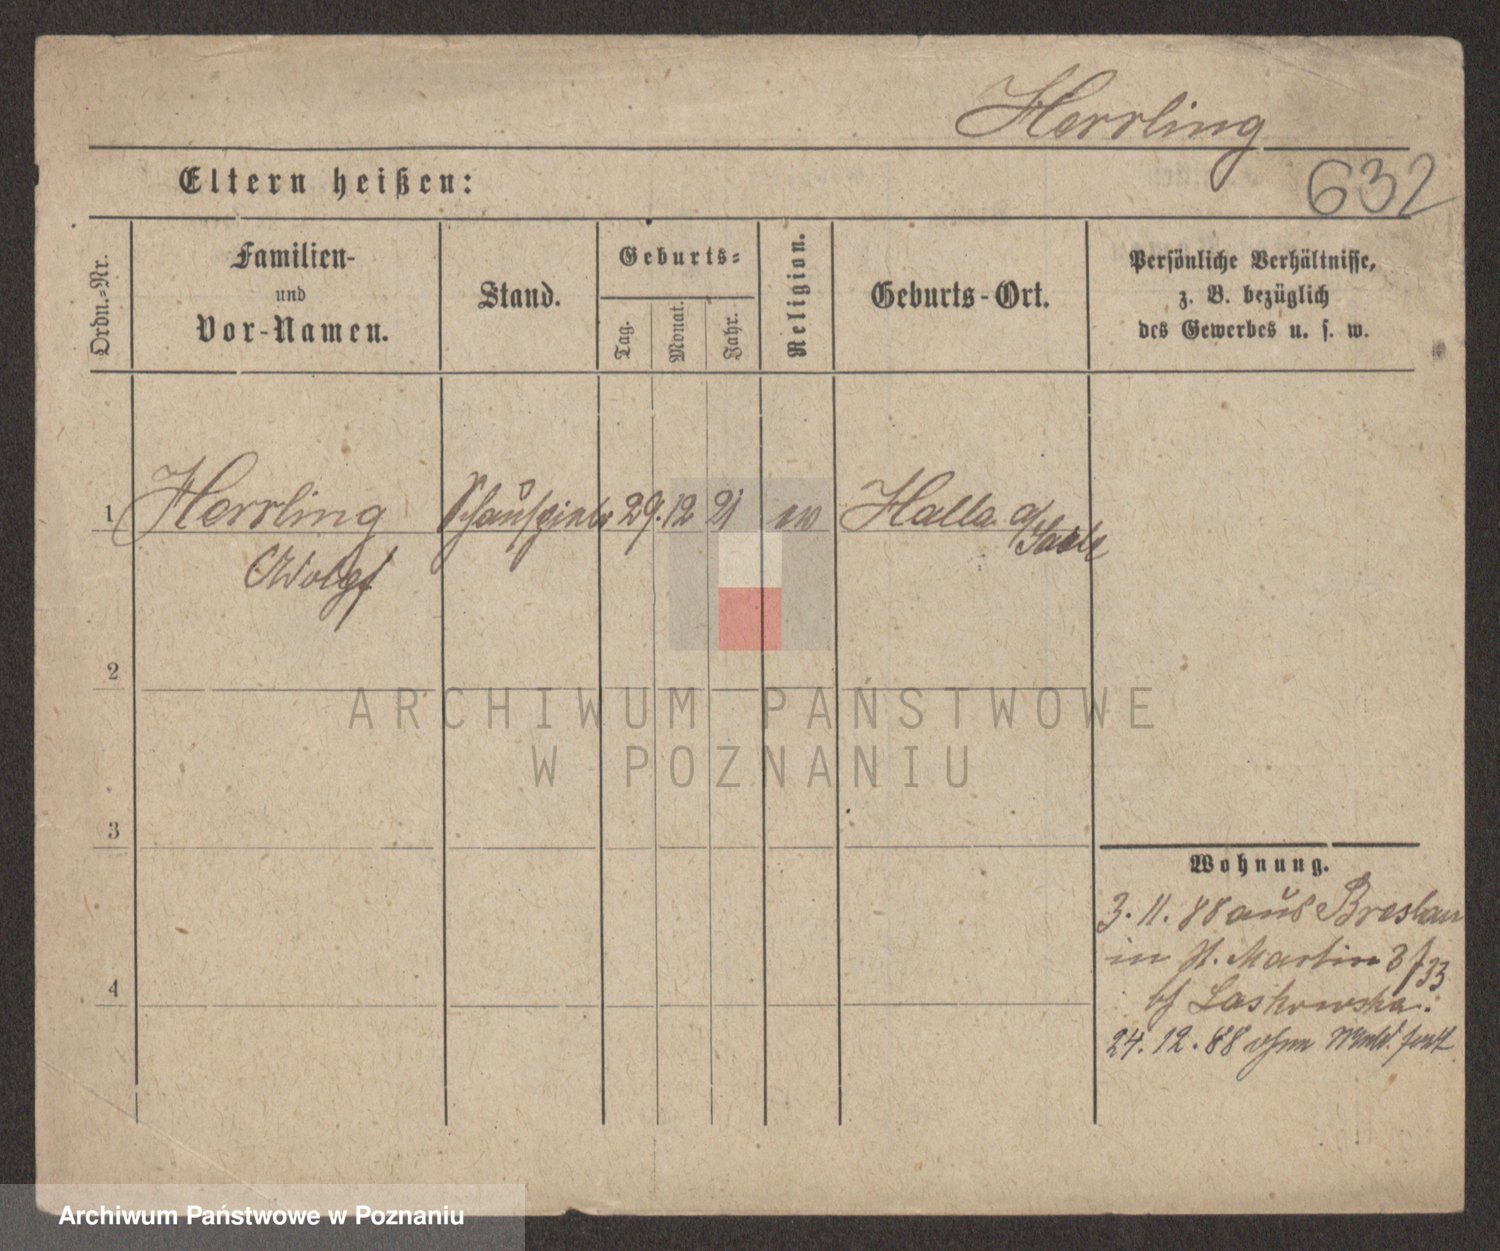 Herrling
632
Eltern heißen:
Ordn.-Nr.
Familien-
und
Vor-Namen.
Stand.
Geburts-
Tag.
Monat.
Jahr.
Religion.
Geburts-Ort.
Persönliche Verhältnisse,
z. B. bezüglich
des Gewerbes u. s. w.
1 Herrling Schauspieler 29. 12 21 ev Halle a/
Saale
Adolf
2
ARCHIWUM PAŃSTWOWE
W POZNANIU
3
Wohnung.
3. 11. 88 aus Breslau
in St. Martin 3
33
bj Laskowska.
4
24. 12. 88 ohne Meld. fort
Archiwum Państwowe w Poznaniu